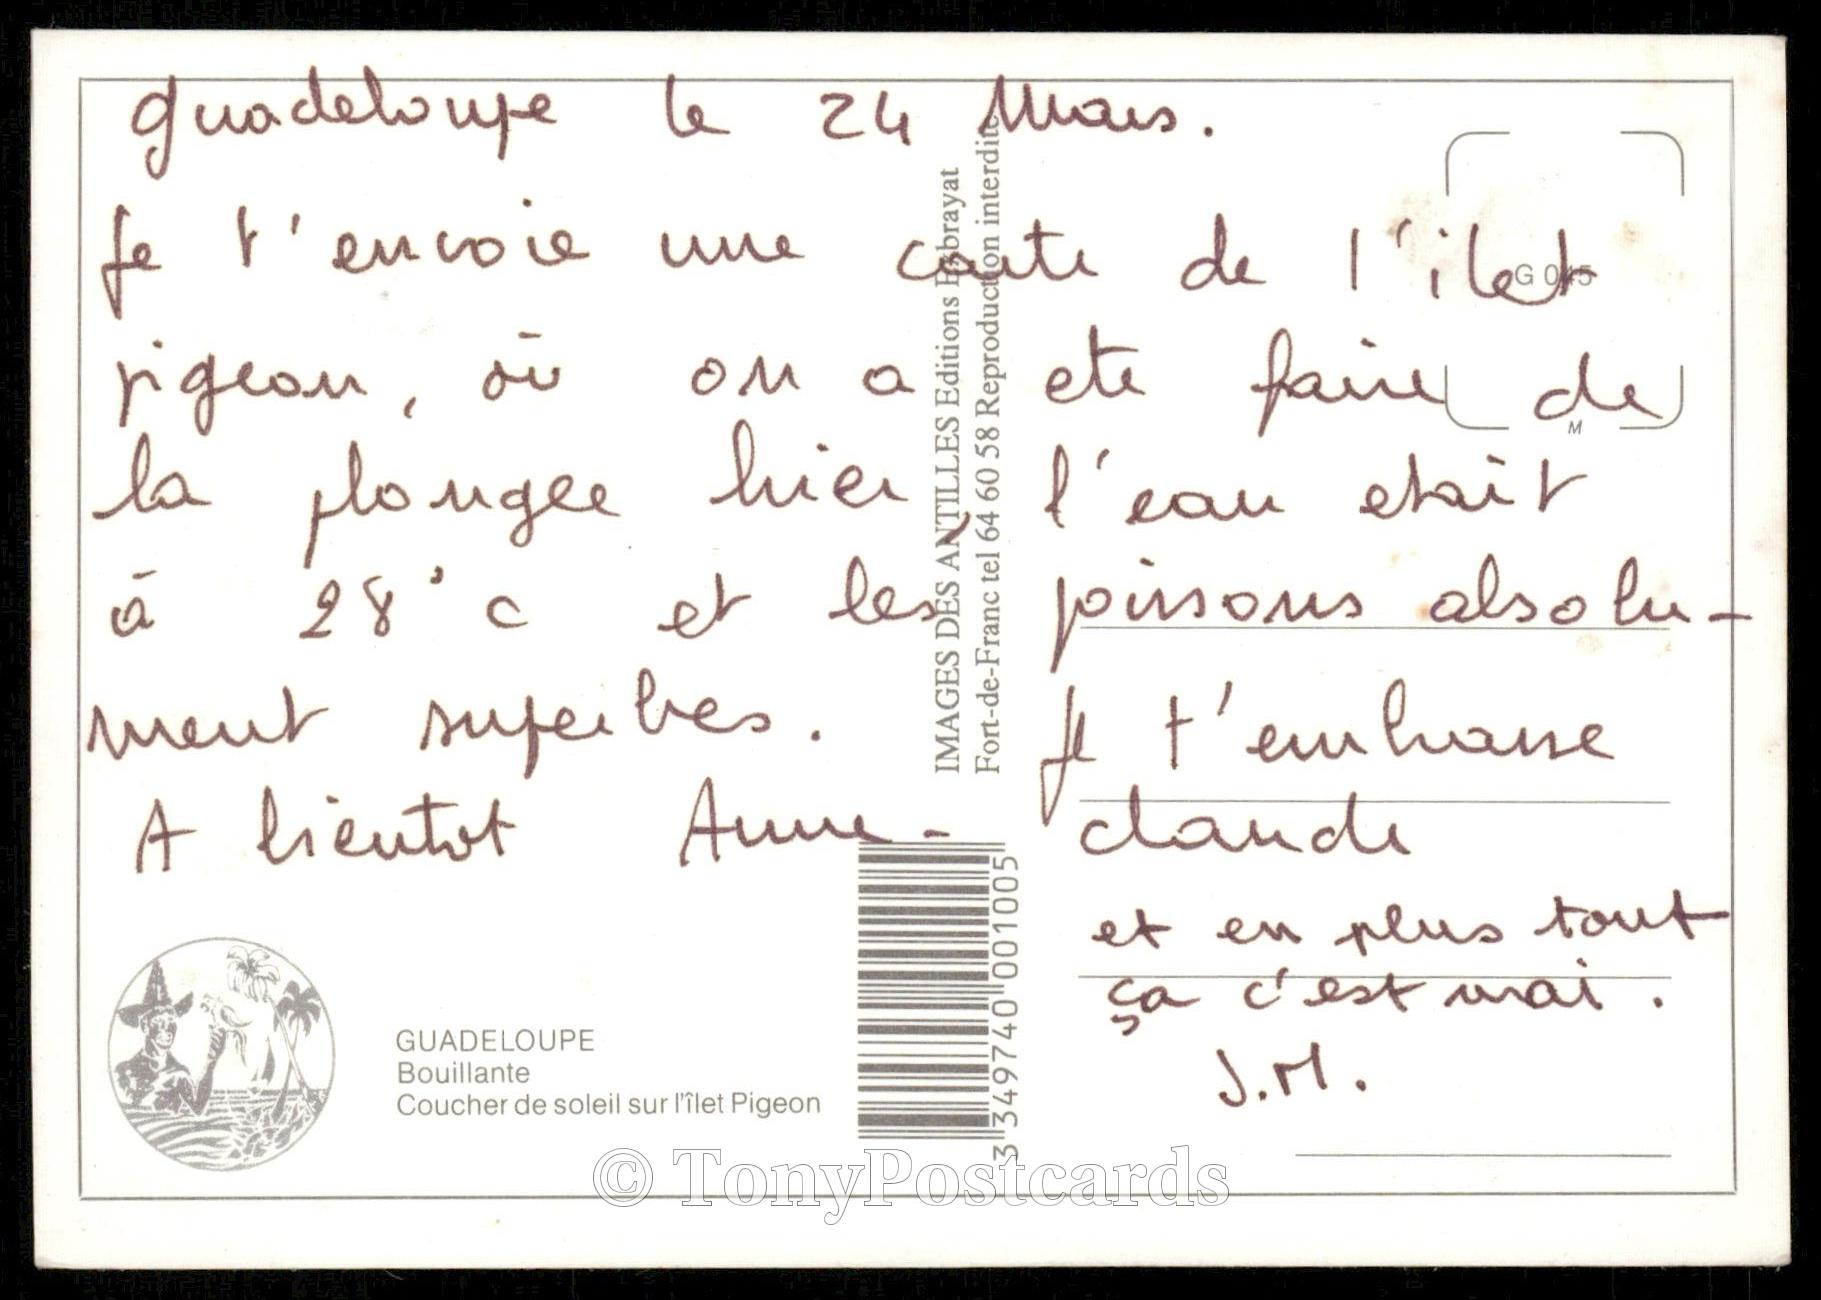 Guadeloupe le 24 Mars.
Je t'envoie une carte de l'ilet
pigeon, où on a eté faire de
la plongee hier, l'eau etait
à 28°c et les poissons absolu-
ment superbes. Je t'embrasse
A bientot Anne-claude
et en plus tout
ça c'est vrai.
J.M.
GUADELOUPE
Bouillante
Coucher de soleil sur l'îlet Pigeon
IMAGES DES ANTILLES Editions Exbrayat
Fort-de-Franc tel 64 60 58 Reproduction interdite
G 045
M
3 349740 001005
© TonyPostcards